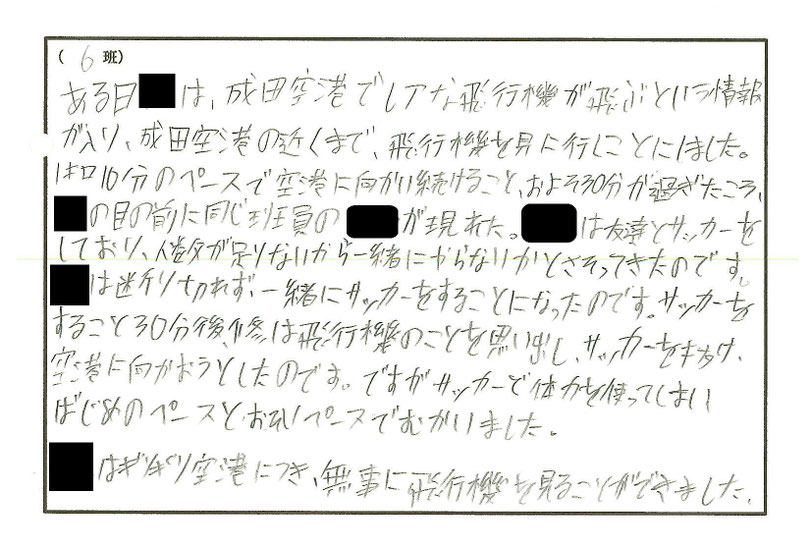 (6 班)
ある日 は、成田空港でレアな飛行機が飛ぶという情報
が入り、成田空港の近くまで、飛行機を見に行くことにしました。
1キロ10分のペースで空港に向かい続けること、およそ30分が過ぎたころ、
の目の前に同じ班員の が現れた。 は友達とサッカーを
しており、人数が足りないから一緒にやらないかとさそってきたのです。
は断りきれず、一緒にサッカーをすることになったのです。サッカーを
すること30分後、 は飛行機のことを思い出し、サッカーをぬけ、
空港に向かおうとしたのです。ですがサッカーで体力を使ってしまい
はじめのペースとおそいペースでむかいました。
はギリギリ空港につき、無事に飛行機を見ることができました。